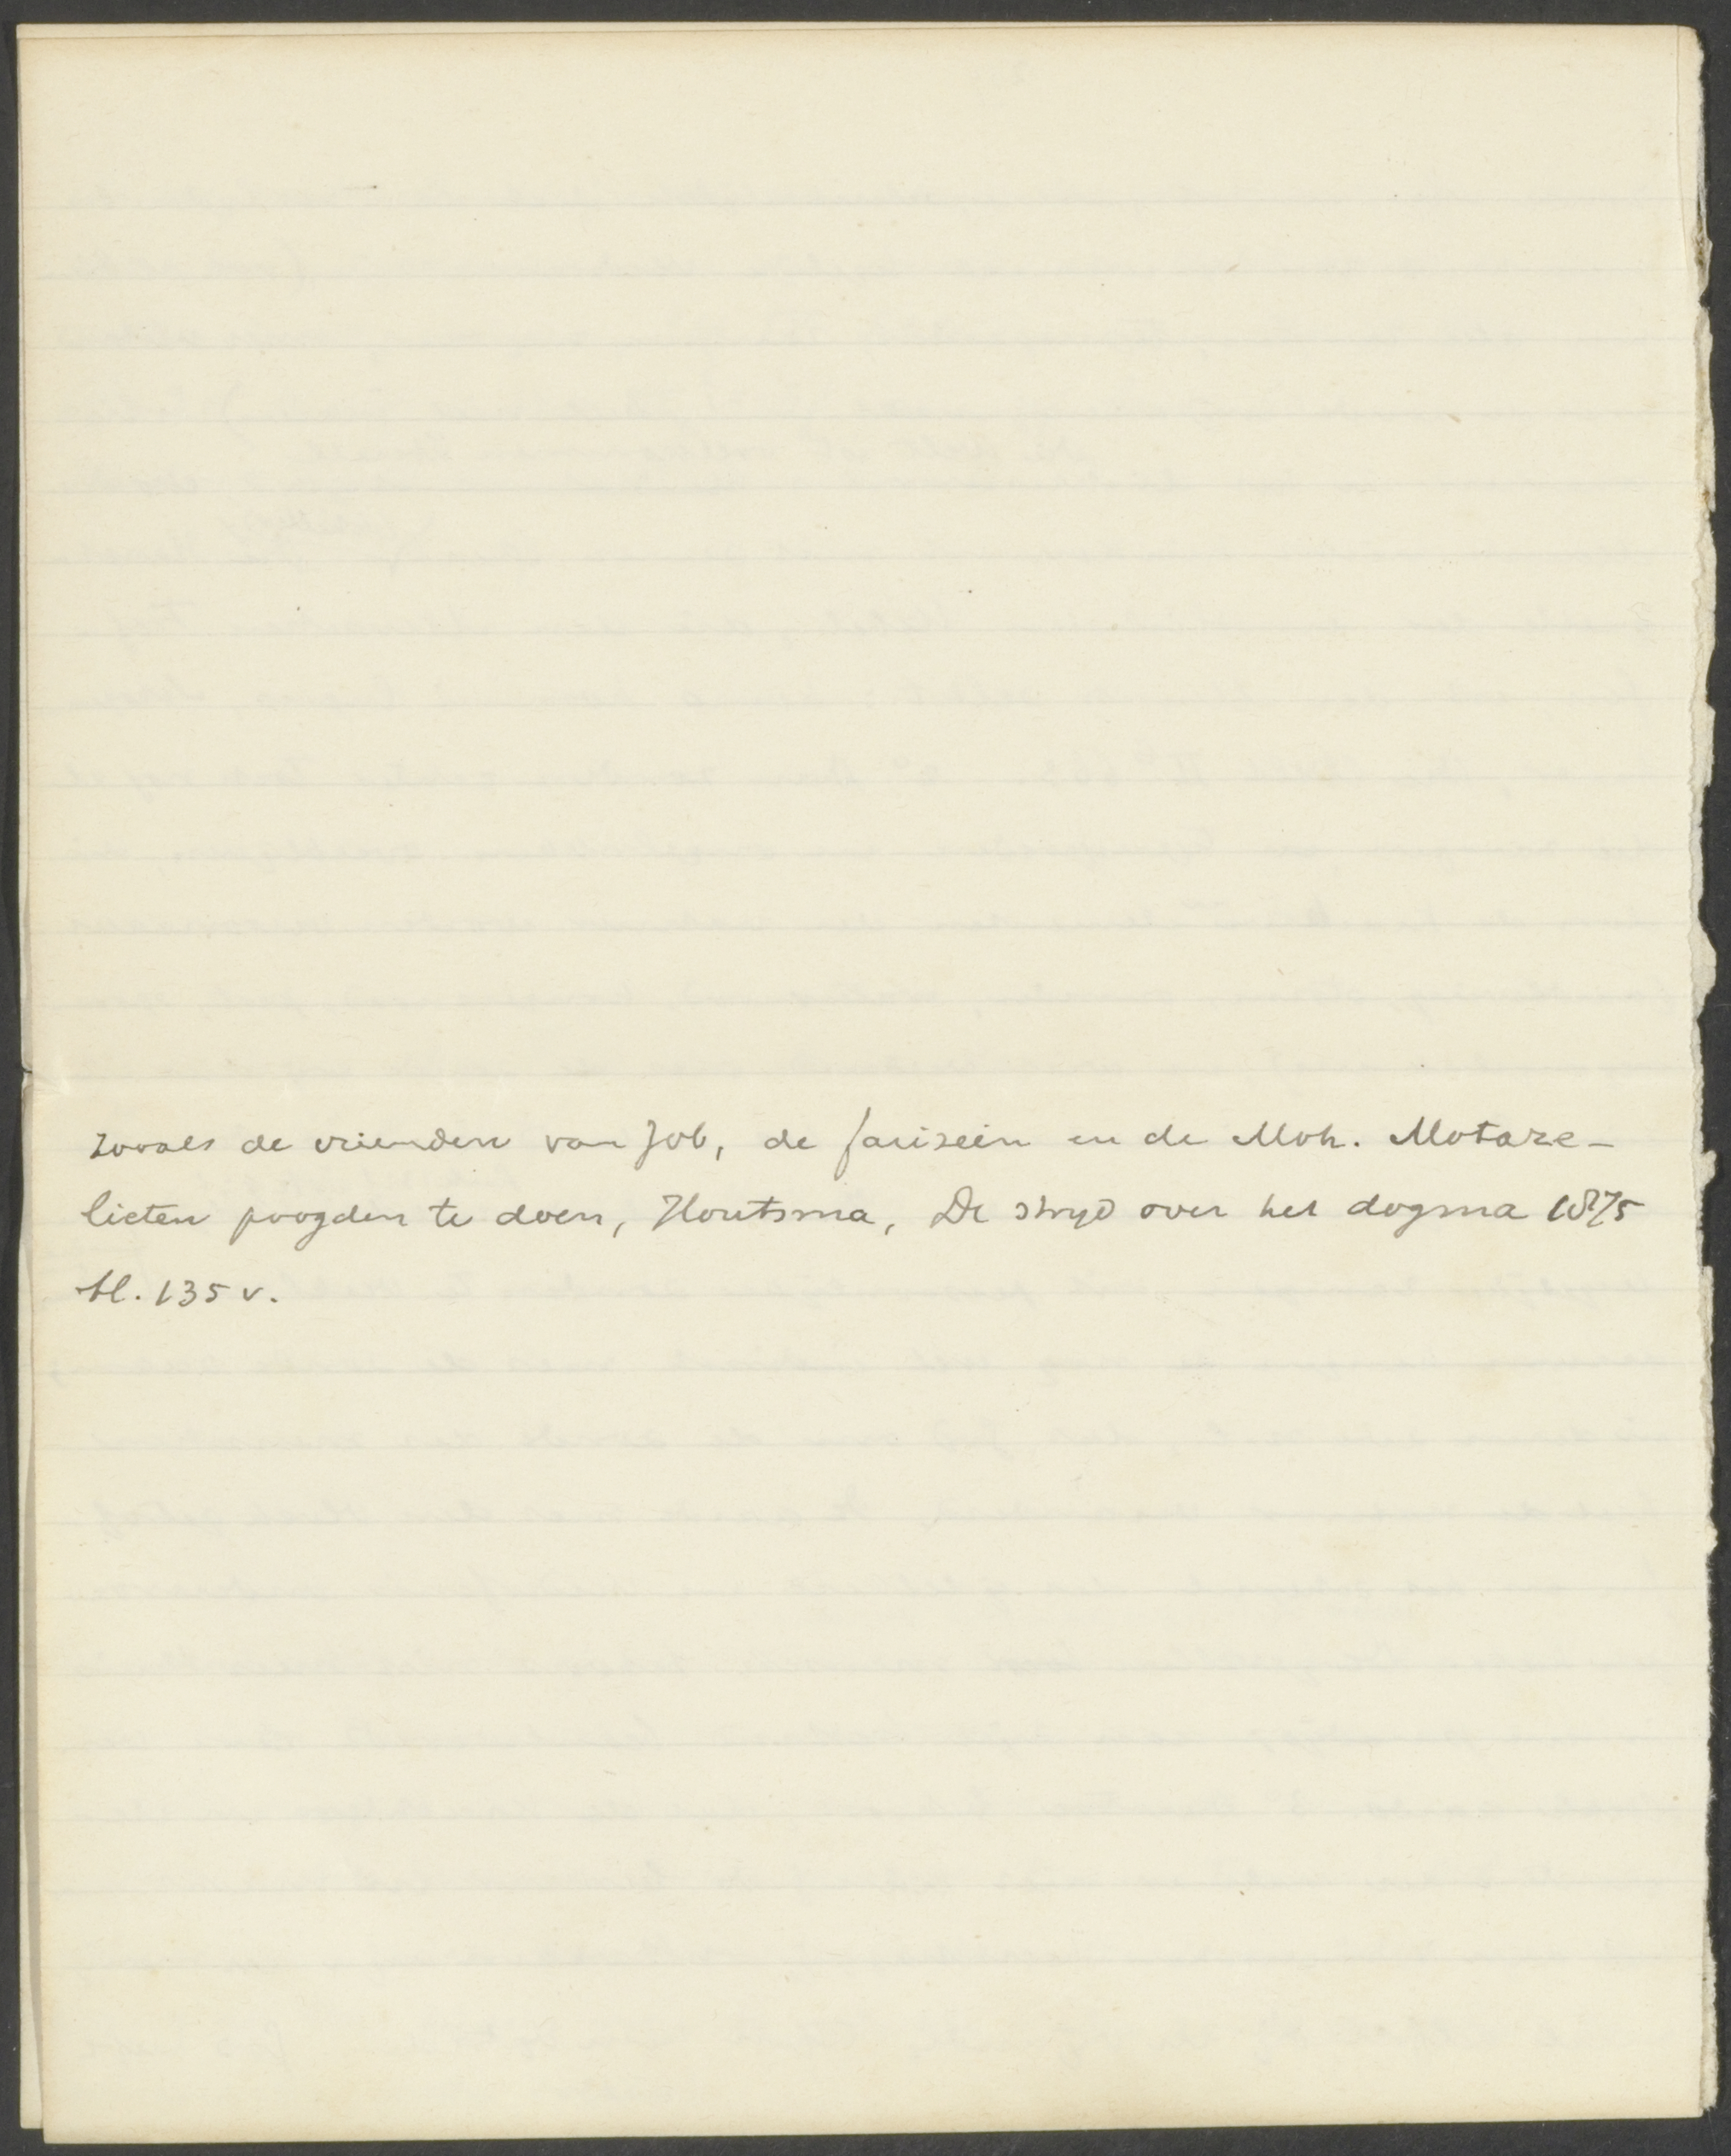 zooals de vrienden van Job, de fariseën en de Moh. Motaze-
lieten poogden te doen, Houtsma, De strijd over het dogma 1875
bl. 135 v.